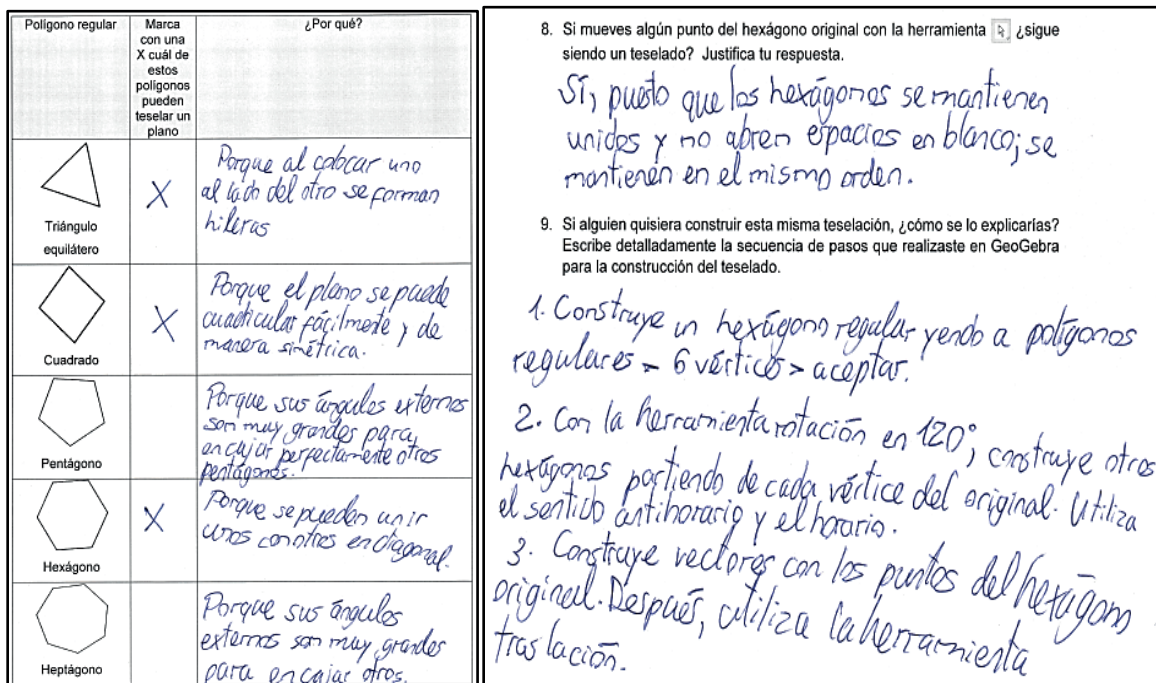 Polígono regular
Marca
con una
X cuál de
estos
polígonos
pueden
teselar un
plano
¿Por qué?
Triángulo
equilátero
X
Porque al colocar uno
al lado del otro se forman
hileras
Cuadrado
X
Porque el plano se puede
cuadricular fácilmente y de
manera simétrica.
Pentágono
Porque sus ángulos externos
son muy grandes para
encajar perfectamente otros
pentágonos.
Hexágono
X
Porque se pueden unir
unos con otros en diagonal.
Heptágono
Porque sus ángulos
externos son muy grandes
para encajar otros.
8. Si mueves algún punto del hexágono original con la herramienta ¿sigue
siendo un teselado? Justifica tu respuesta.
Sí, puesto que los hexágonos se mantienen
unidos y no abren espacios en blanco; se
mantienen en el mismo orden.
9. Si alguien quisiera construir esta misma teselación, ¿cómo se lo explicarías?
Escribe detalladamente la secuencia de pasos que realizaste en GeoGebra
para la construcción del teselado.
1. Construye un hexágono regular yendo a polígonos
regulares - 6 vértices > aceptar.
2. Con la herramienta rotación en 120°, construye otros
hexágonos partiendo de cada vértice del original. Utiliza
el sentido antihorario y el horario.
3. Construye vectores con los puntos del hexágono
original. Después, utiliza la herramienta
traslación.